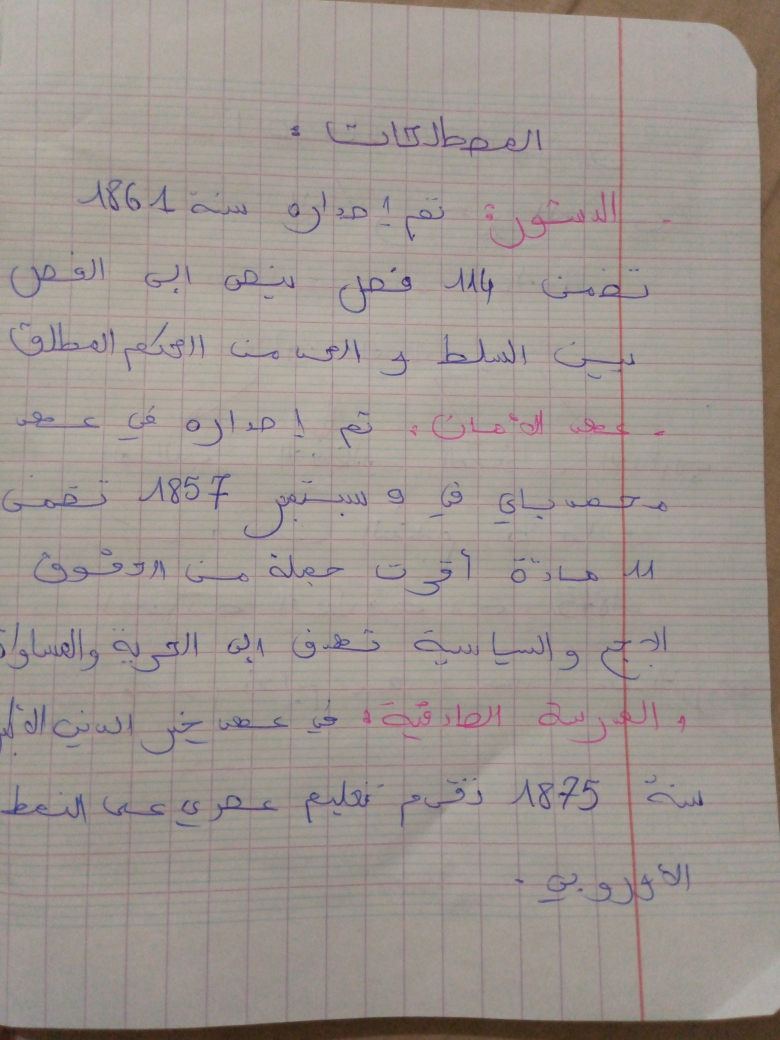 المصطلحات :
- الدستور: تم إصداره سنة 1861
تضمن 114 فصل ينص الى الفصل
بين السلط و الحد من الحكم المطلق
- عهد الأمان: تم إصداره في عهد
محمد باي في 9 سبتمبر 1857 تضمن
11 مادة أقرت جملة من الحقوق
والسياسية تهدف الى الحرية والمساواة
. المدرسة الصادقية: في عهد خير الدين
سنة 1875 تقدم تعليم عصري على النمط
الأوروبي .